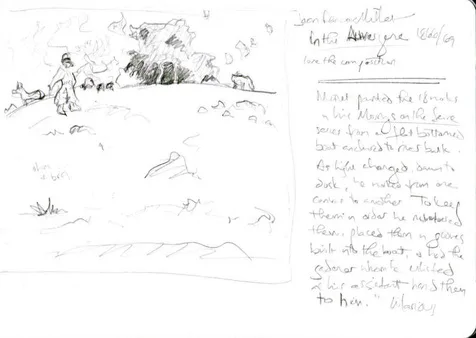 Jean Francois Millet
In the Auvergne 1866/69
love the composition
Monet painted the 18 works
in his Mornings on the Seine
series from a flat bottomed
boat anchored to river bank.
As light changed, dawn to
dusk, he moved from one
canvas to another. To keep
them in order he numbered
them, placed them in grooves
built into the boat, & had the
gardener
& his assistant hand them
to him."